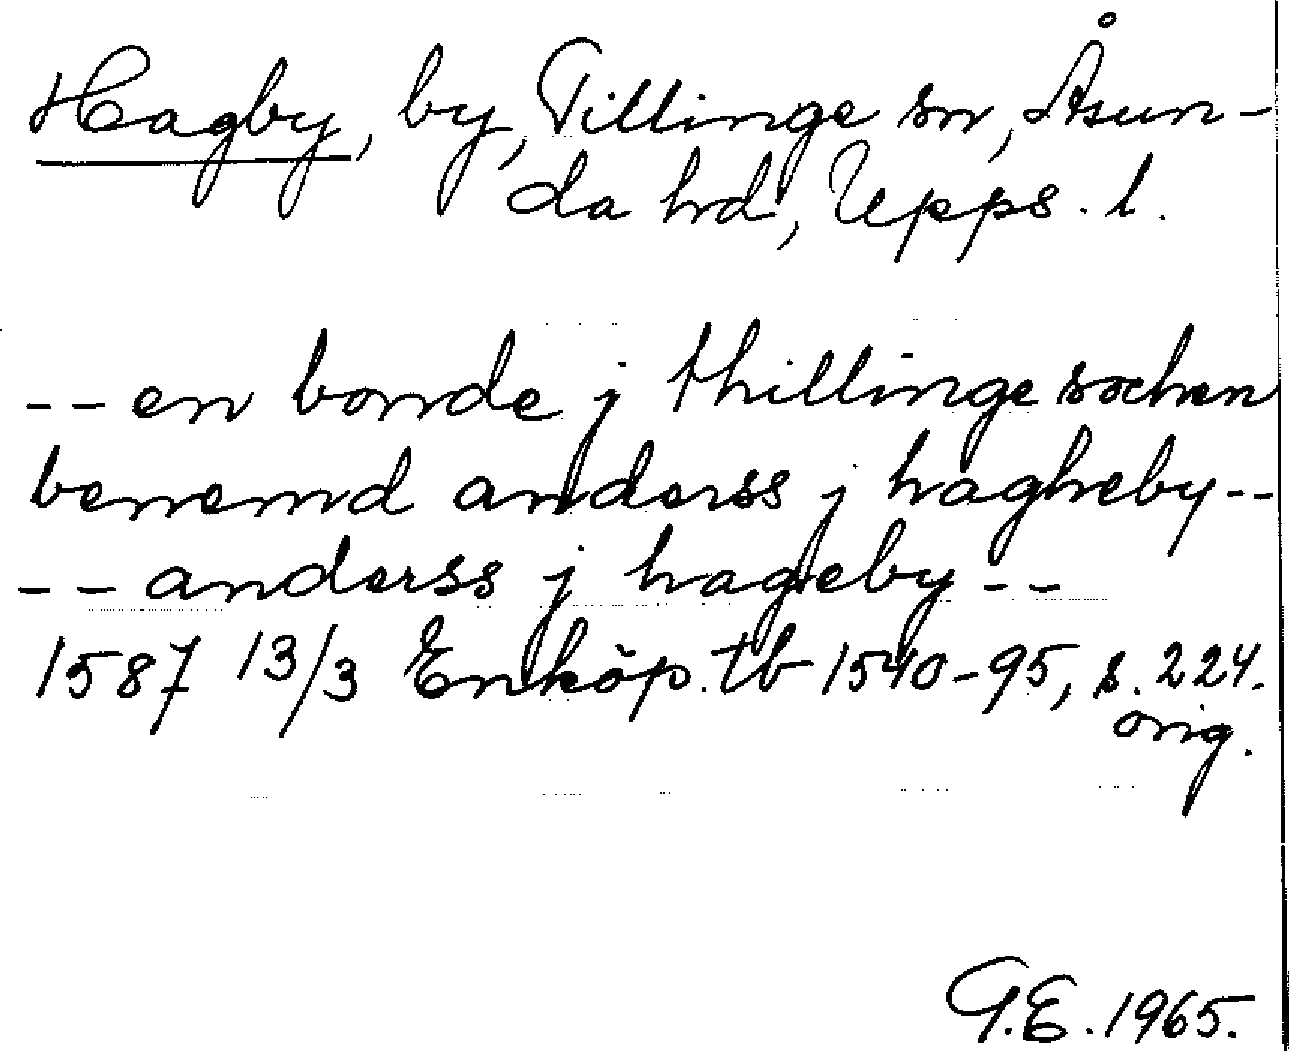 Hagby, by, Tillinge sn, Åsun-
da hrd, Upps. l.
-- en bonde j thillinge sochen
benemd anderss j hagheby --
-- anderss j hageby --
1587 13/3 Enköp. tb 1540-95, s. 224.
orig.
G.E. 1965.